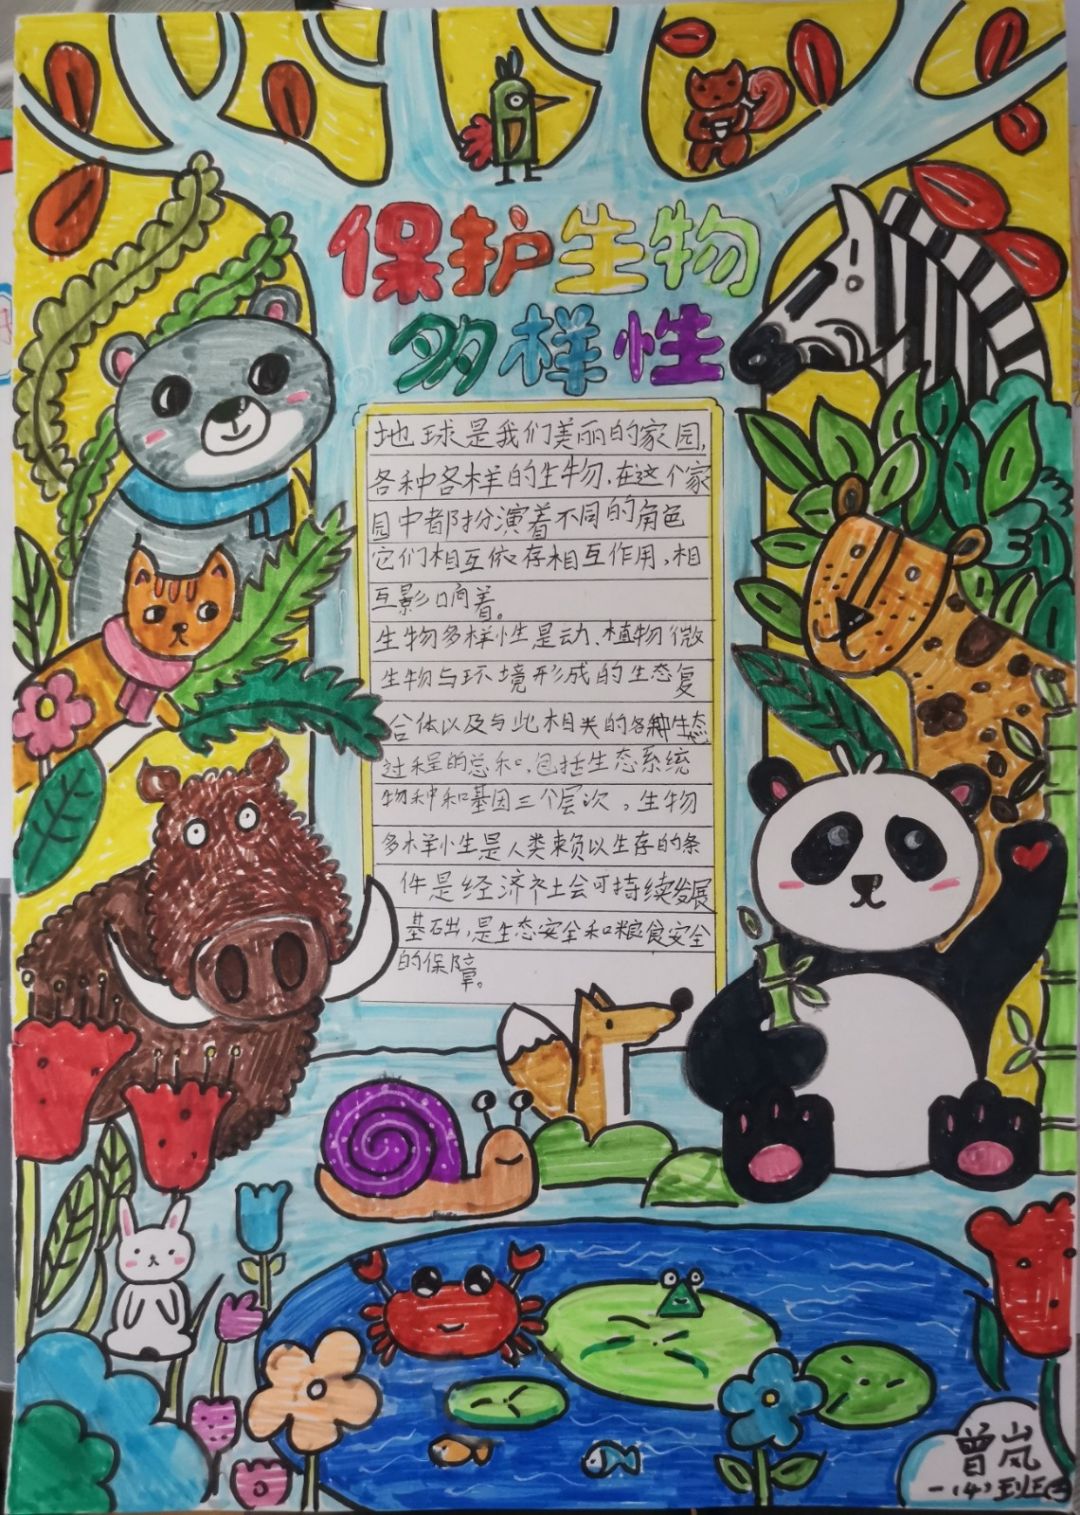 保护生物
多样性
地球是我们美丽的家园,
各种各样的生物,在这个家
园中都扮演着不同的角色
它们相互依存相互作用,相
互影响着。
生物多样性是动、植物微
生物与环境形成的生态复
合体以及与此相关的各种生态
过程的总和,包括生态系统
物种和基因三个层次。生物
多样性是人类赖以生存的条
件是经济社会可持续发展
基础,是生态安全和粮食安全
的保障。
曾岚
一(4)班